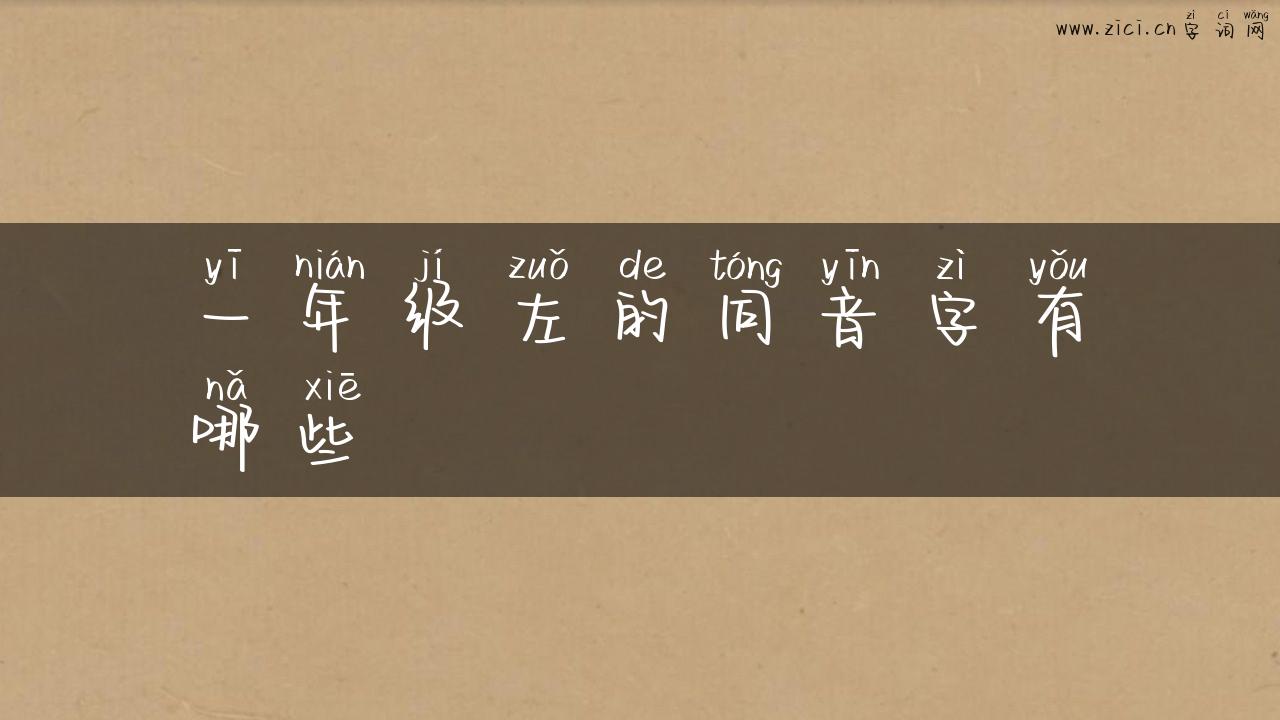 zì cí wǎng
www.zici.cn 字 词 网
yī nián jí zuǒ de tóng yīn zì yǒu
一 年 级 左 的 同 音 字 有
nǎ xiē
哪 些